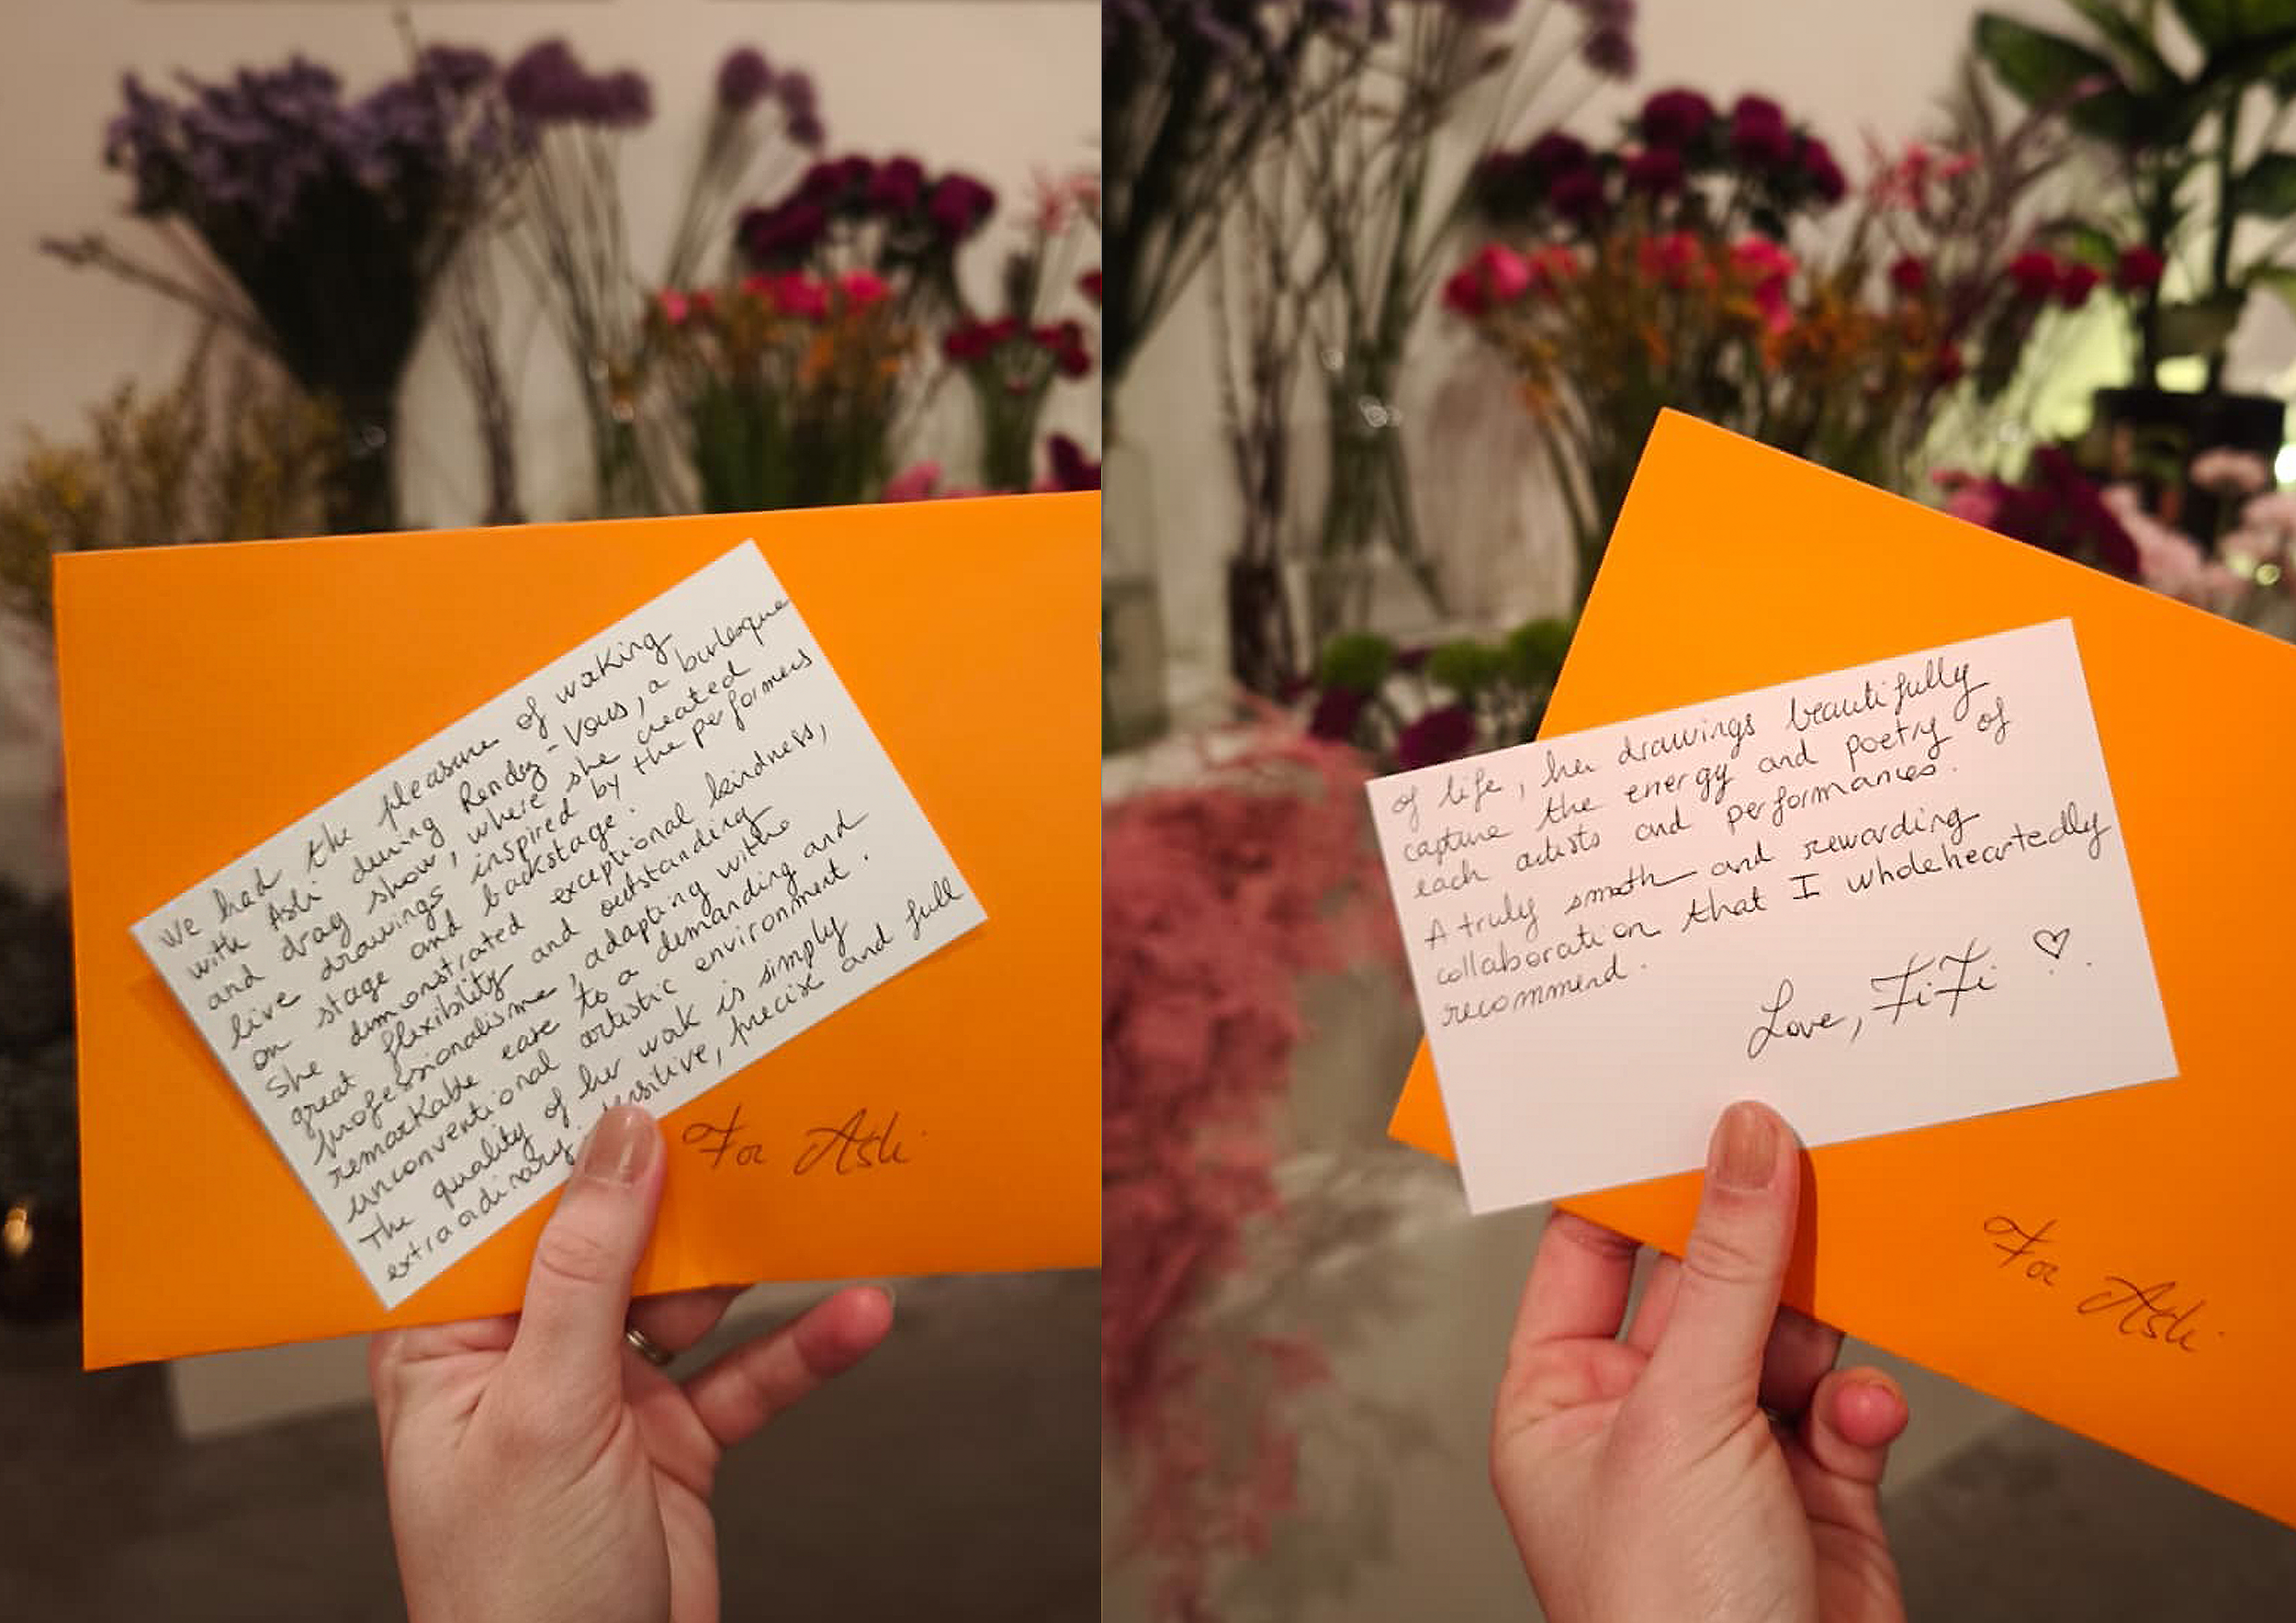 We had the pleasure of woking
with Asli during Rendez-Vous, a burlesque
and drag show, where she created
live drawings inspired by the performers
on stage and backstage.
She demonstrated exceptional kindness,
great flexibility and outstanding
professionalisme, adapting with
remarkable ease to a demanding and
unconventional artistic environment.
The quality of her wok is simply
extraordinary. Sensitive, precise and full
For Asli
of life, her drawings beautifully
capture the energy and poetry of
each artists and performances.
A truly smooth and rewarding
collaboration that I wholeheartedly
recommend.
Love, FiFi ♡
For Asli